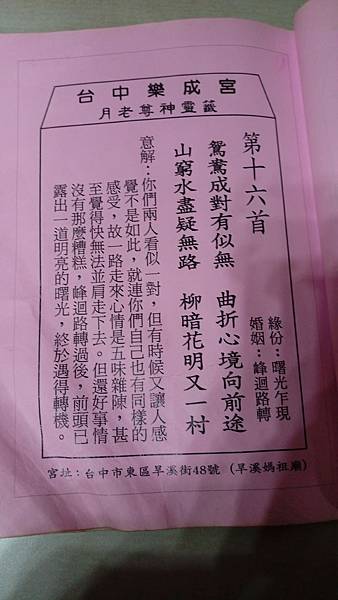 台中樂成宮
月老尊神靈籤
第十六首
緣份：曙光乍現
婚姻：峰迴路轉
鴛鴦成對有似無　曲折心境向前途
山窮水盡疑無路　柳暗花明又一村
意解：你們兩人看似一對，但有時候又讓人感
覺不是如此，就連你們自己也有同樣的
感受，故一路走來心情是五味雜陳，甚
至覺得快無法並肩走下去。但還好事情
沒有那麼糟糕，峰迴路轉過後，前頭已
露出一道明亮的曙光，終於遇得轉機。
宮址：台中市東區旱溪街48號（旱溪媽祖廟）